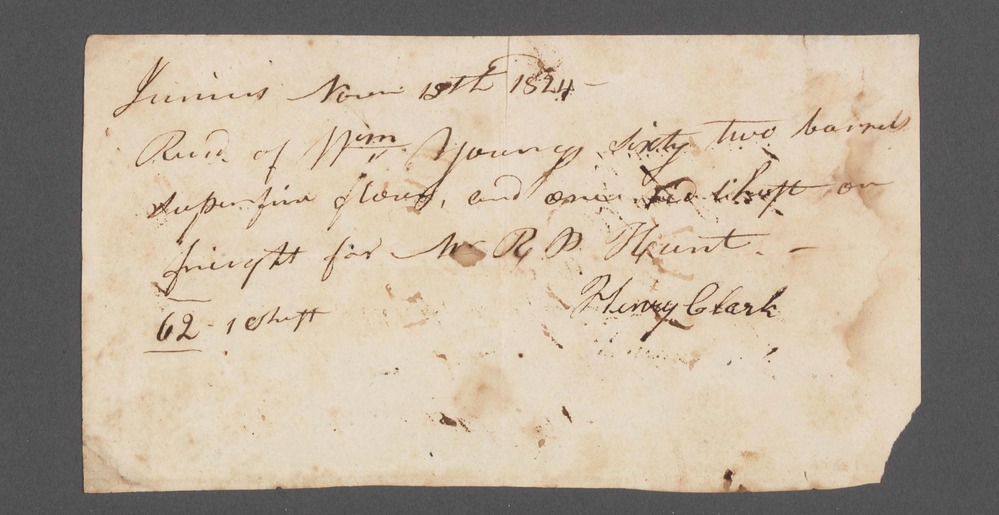 Junius Novr 18th 1824 -
Recd. of Wm Young sixty two barrels
superfine flour, and one chest on
freight for Mr R P Hunt. -
62 - 1 chest
Henry Clark